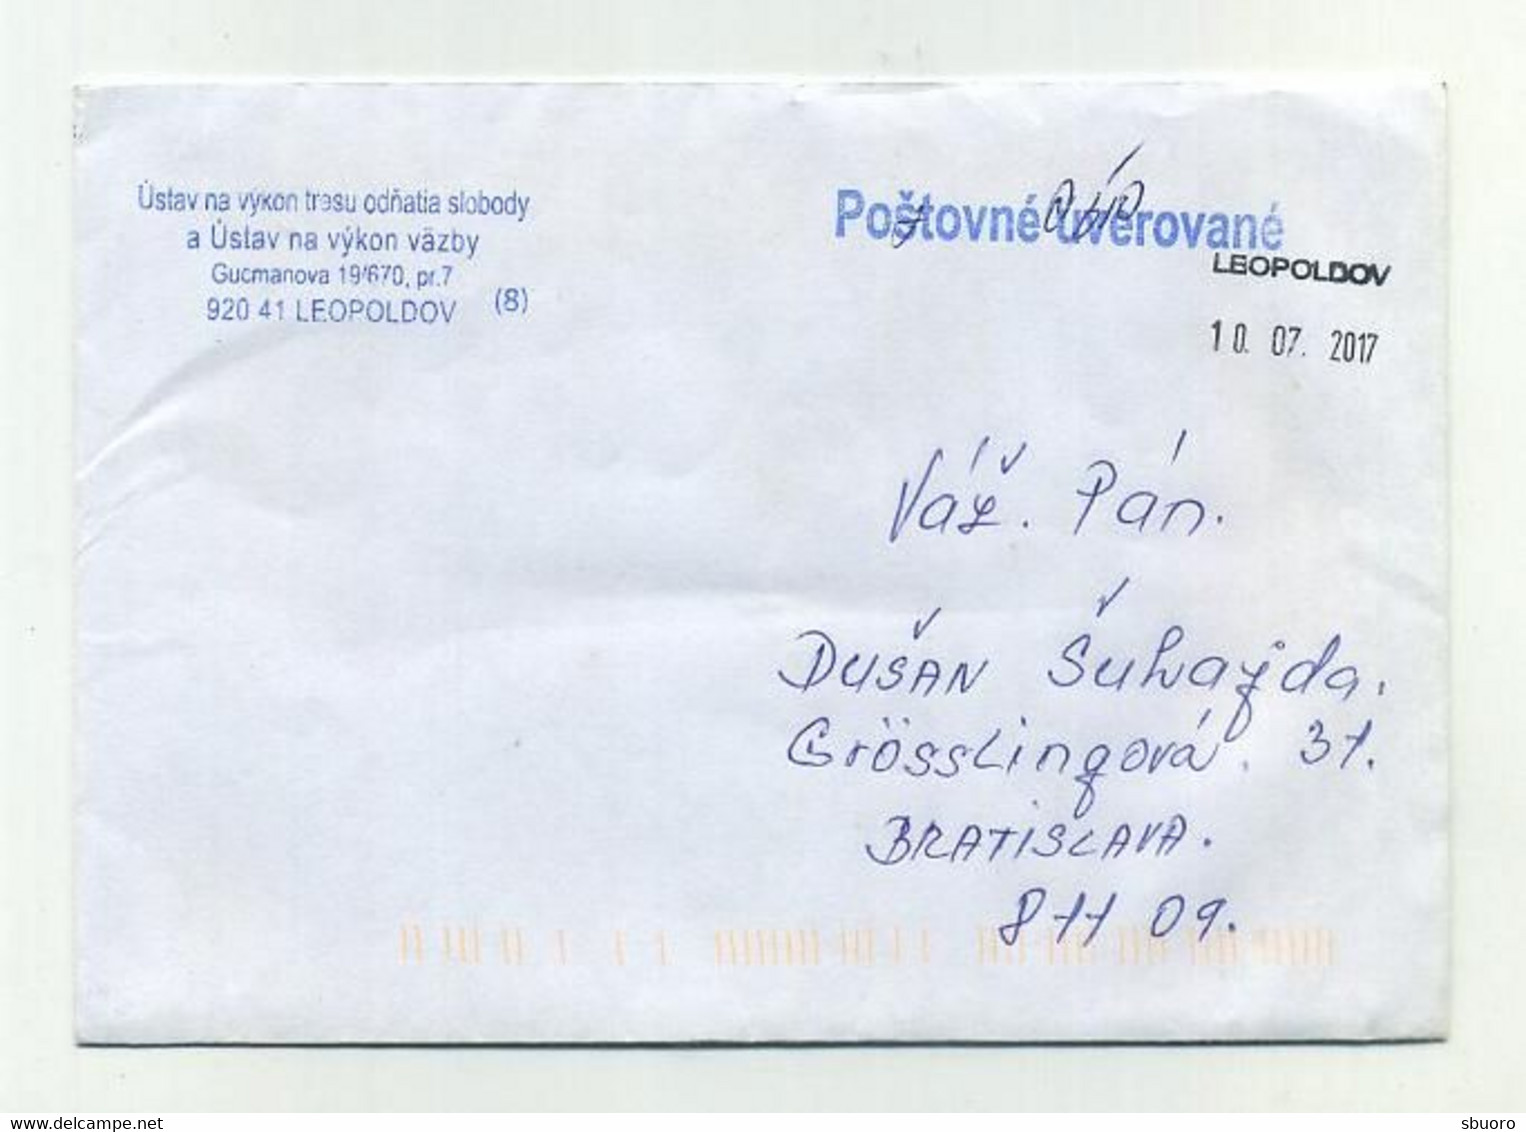 Ústav na výkon trestu odňatia slobody
a Ústav na výkon väzby
Gucmanova 19/670, pr.7
920 41 LEOPOLDOV (8)
Poštovné úverované
LEOPOLDOV
10. 07. 2017
Váž. Pán.
DUŠAN Šuhajda.
Grösslingová. 31.
BRATISLAVA.
811 09.
www.delcampe.net
sbuoro